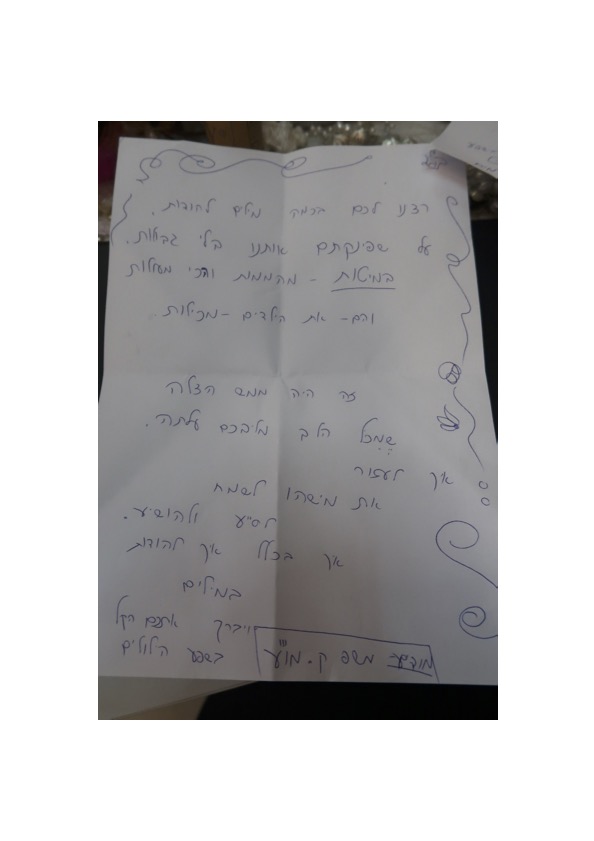 רצנו לכם בכמה מלים להודות.
על שפינקתם אותנו בלי גבולות.
במיטות - מהממות והכי מעולות
והם - את הילדים - מכילות
זה היה ממש הצלה
שמכל הלב מליבכם עלתה.
איך לעזור
את מישהו לשמח
לסייע ולהושיע.
איך בכלל איך להודות
במילים
ויברך אתכם הקל
בשפע הלולים
משפ ק. מו"ע